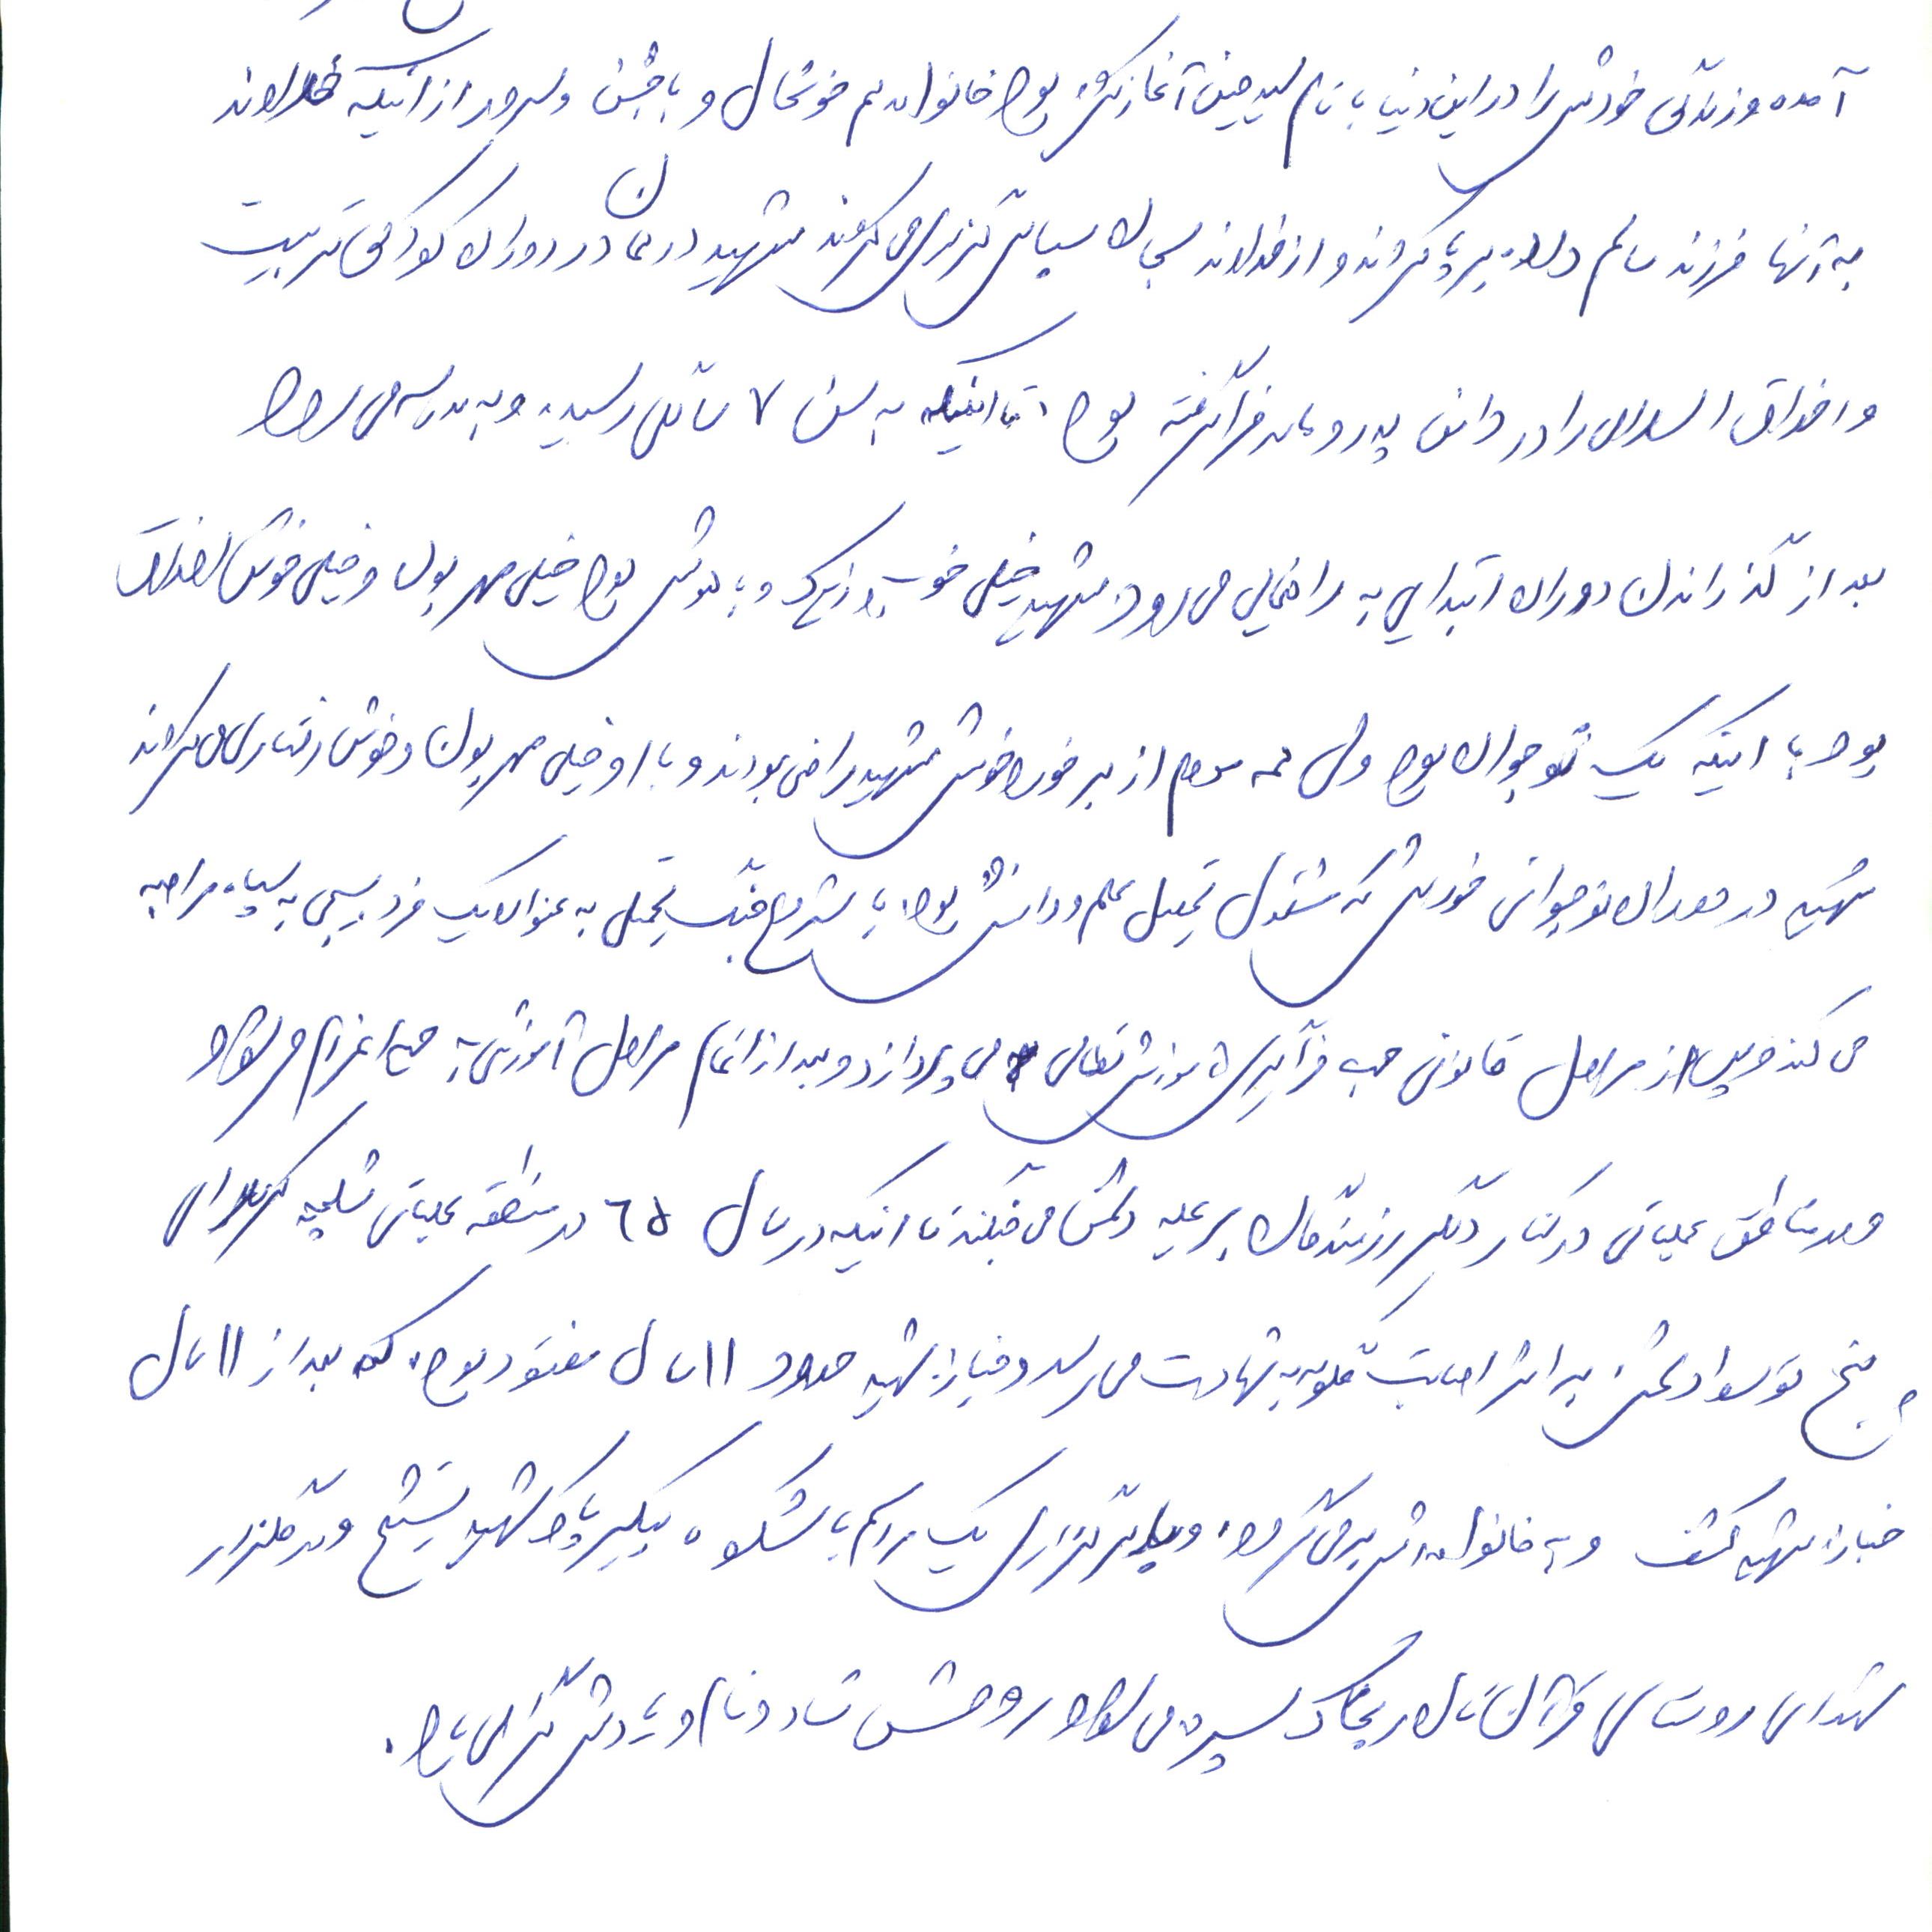 آمده و زندگی خودش را در این دنیا با نام سید حسین آغاز کرده بود خانواده هم خوشحال و با جشن و سرور از اینکه خداوند
به آنها فرزند سالم داده برپا کردند و از خداوند سبحان سپاس گزاری می کردند شهید در همان دوران کودکی تربیت
و اخلاق اسلامی را در دامن پدر و مادر فرا گرفته بود. تا اینکه به سن ۷ سالگی رسیده و به مدرسه می رود
بعد از گذراندن دوران ابتدایی به راهنمایی می رود. شهید خیلی خوب زیرک و با هوش بود خیلی مهربان و خیلی خوش اخلاق
بود با اینکه یک نوجوان بود ولی همه مردم از برخورد خوش شهید راضی بودند و با او خیلی مهربان و خوش رفتاری می کردند
شهید در دوران نوجوانی خودش که مشغول تحصیل علم و دانش بود، با شروع جنگ تحمیلی به عنوان یک فرد بسیجی به سپاه مراجعه
می کند و پس از مراحل قانونی جهت فراگیری آموزش نظامی می پردازد و بعد از اتمام مراحل آموزشی به جبهه اعزام می شود
و در مناطق عملیاتی در کنار دیگر رزمندگان بر علیه دشمن می جنگند تا اینکه در سال ٦٥ در منطقه عملیاتی شلمچه کربلای
پنج توسط دشمن بر اثر اصابت گلوله به شهادت می رسد و جنازه شهید حدود ۱۱ سال مفقود بود. که بعد از ۱۱ سال
جنازه شهید کشف و به خانواده اش بر می گردد، و با برگزاری یک مراسم با شکوه پیکر پاک شهید تشییع و در گلزار
شهدای روستای به خاک سپرده می شود روحش شاد و نام و یادش گرامی باد.